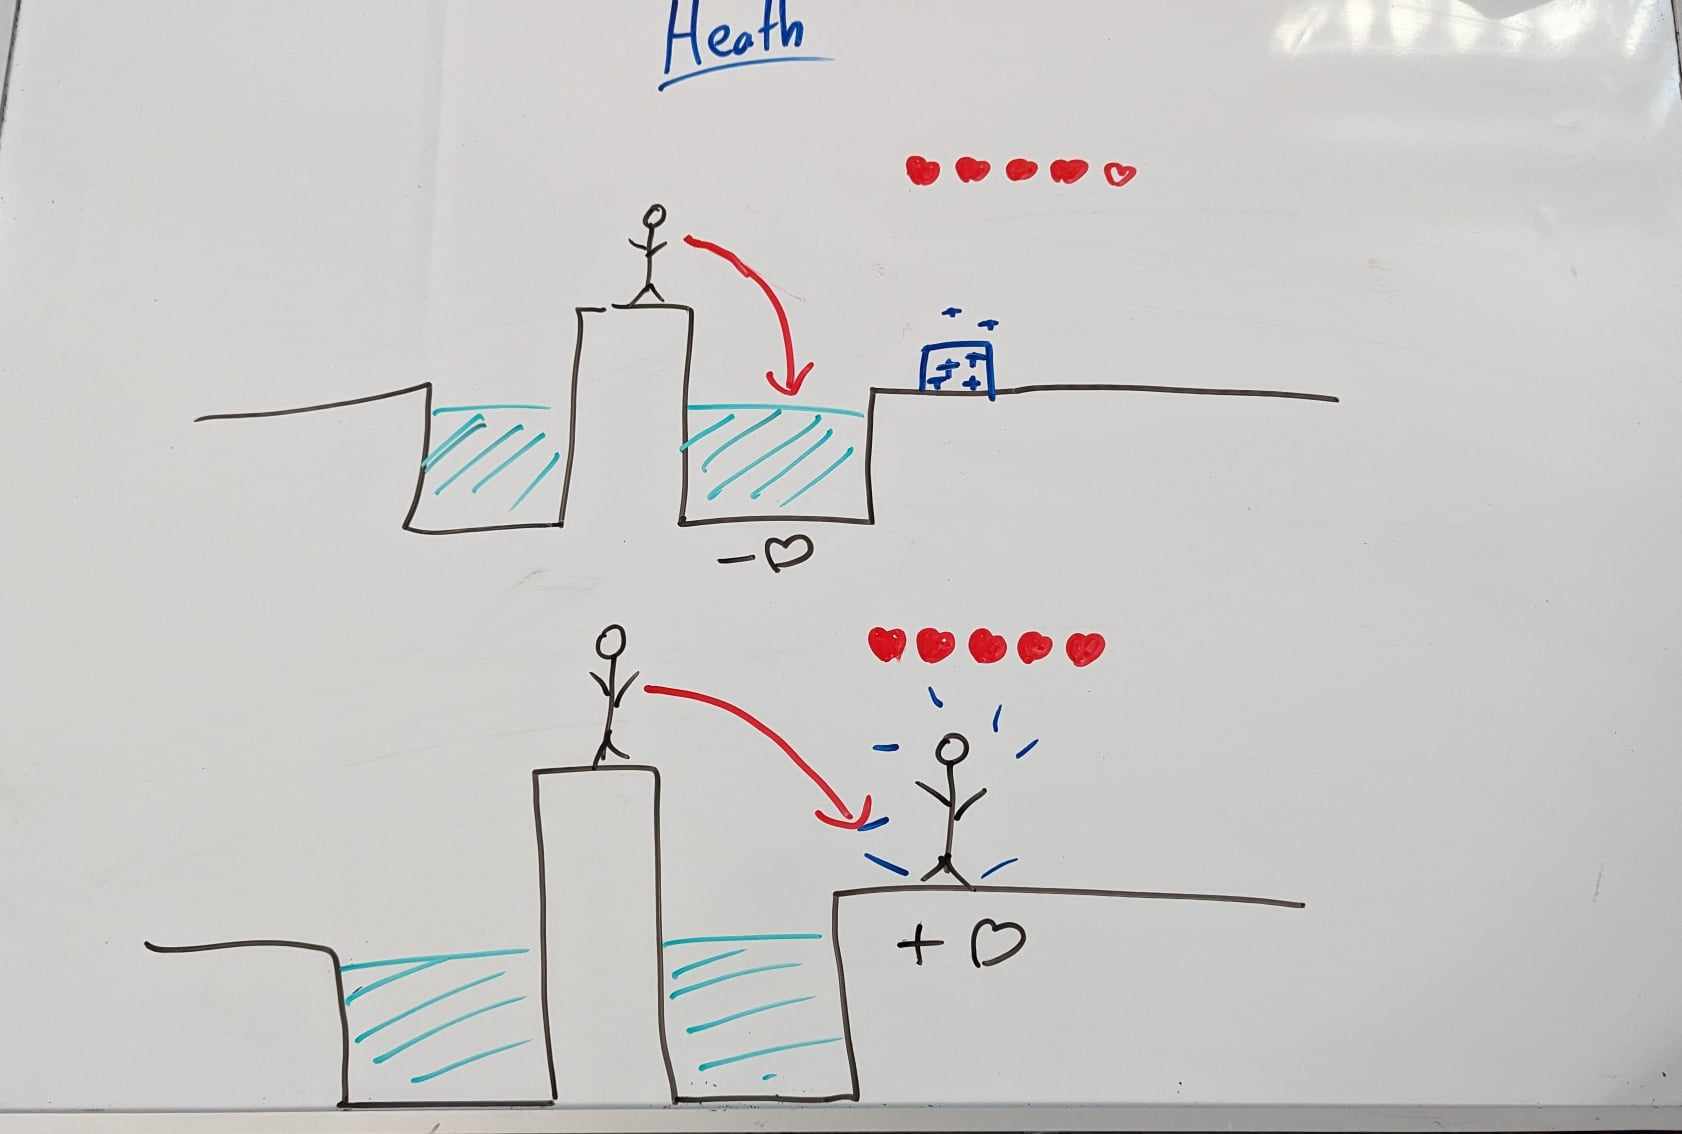 Heath
- ♡
+ ♡